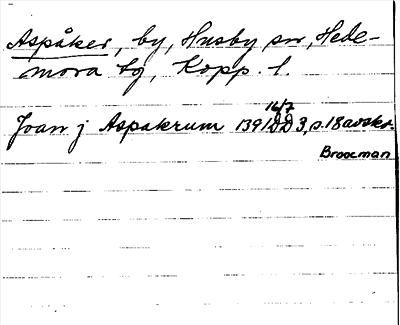 Aspåker, by, Husby sn, Hede-
mora tg, Kopp. l.
16/7
Joan j Aspakrum 1391 DD 3, s. 18 avskr.
Broocman